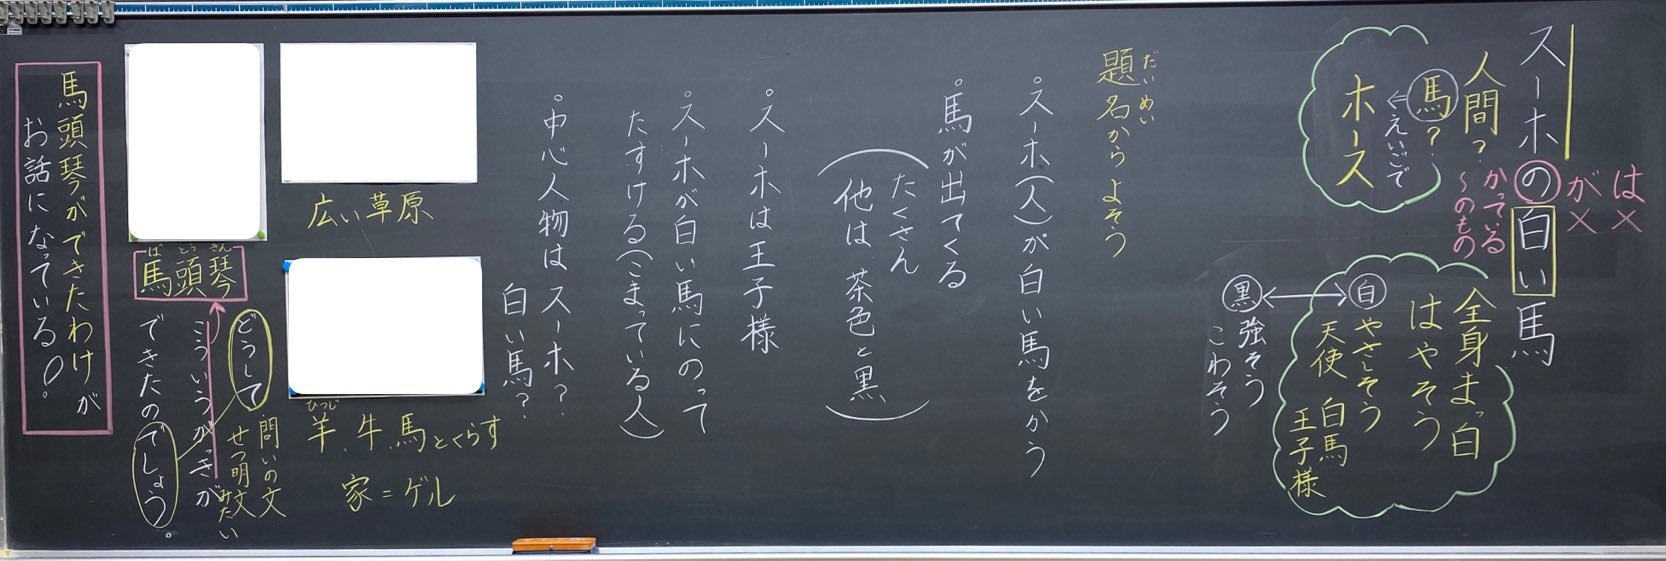 スーホの白い馬
は×
が×
かっている
～のもの
人間?
馬?
←えいごで
ホース
全身まっ白
はやそう
白
やさしそう
天使 白馬
王子様
黒
強そう
こわそう
題名からよそう
だいめい
。スーホ(人)が白い馬をかう
。馬が出てくる
(たくさん
他は、茶色と黒)
。スーホは王子様
。スーホが白い馬にのって
たすける(こまっている人)
。中心人物はスーホ?
白い馬?
広い草原
羊、牛、馬とくらす
ひつじ
家=ゲル
馬頭琴
ばとうきん
どうして
こういうがっきが
できたのでしょう。
問いの文
せつ明文
みたい
馬頭琴ができたわけが
お話になっている。